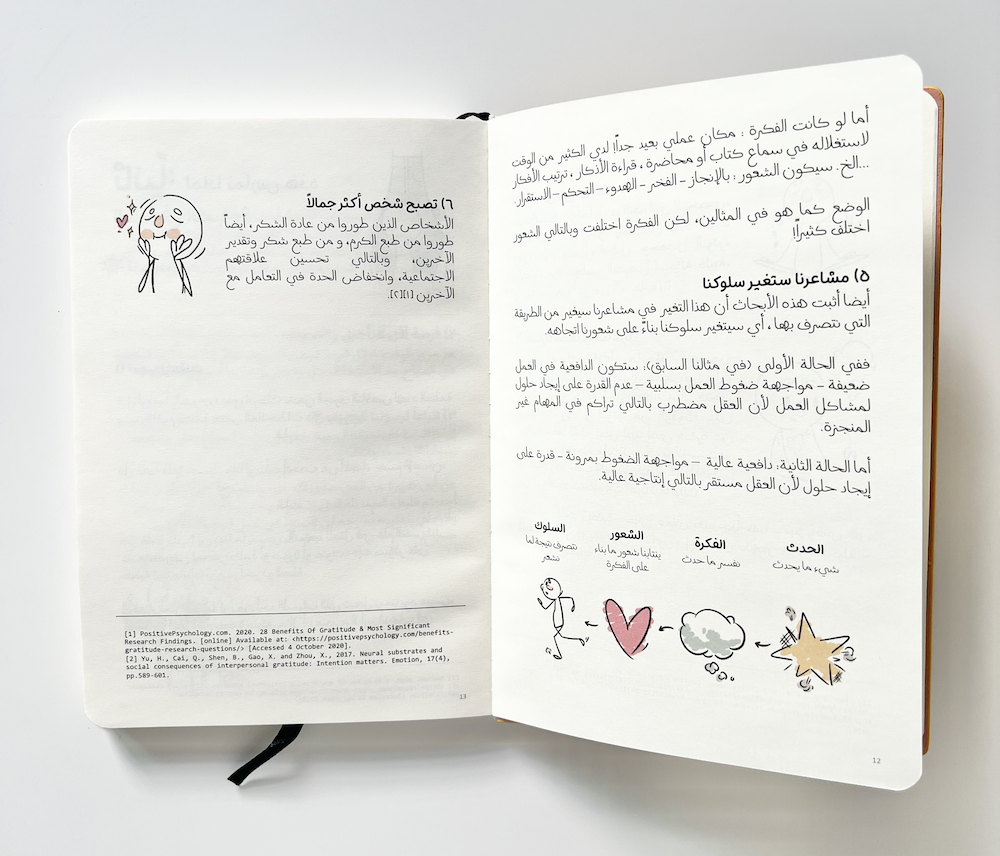 أما لو كانت الفكرة : مكان عملي بعيد جداً! لدي الكثير من الوقت
لاستغلاله في سماع كتاب أو محاضرة ، قراءة الأذكار ، ترتيب الأفكار
...الخ. سيكون الشعور : بالإنجاز – الفخر – الهدوء – التحكم – الاستقرار.
الوضع كما هو في المثالين، لكن الفكرة اختلفت وبالتالي الشعور
اختلف كثيراً!
٥) مشاعرنا ستغير سلوكنا
أيضا أثبت هذه الأبحاث أن هذا التغير في مشاعرنا سيغير من الطريقة
التي نتصرف بها ، أي سيتغير سلوكنا بناءً على شعورنا اتجاهه.
ففي الحالة الأولى (في مثالنا السابق): ستكون الدافعية في العمل
ضعيفة – مواجهة ضغوط العمل بسلبية – عدم القدرة على إيجاد حلول
لمشاكل العمل لأن العقل مضطرب بالتالي تراكم في المهام غير
المنجزة.
أما الحالة الثانية: دافعية عالية – مواجهة الضغوط بمرونة – قدرة على
إيجاد حلول لأن العقل مستقر بالتالي إنتاجية عالية.
الحدث
شيء ما يحدث
الفكرة
نفسر ما حدث
الشعور
ينتابنا شعور ما بناء
على الفكرة
السلوك
نتصرف نتيجة لما
نشعر
12
٦) تصبح شخص أكثر جمالاً
الأشخاص الذين طوروا من عادة الشكر، أيضاً
طوروا من طبع الكرم، و من طبع شكر وتقدير
الآخرين، وبالتالي تحسين علاقتهم
الاجتماعية، وانخفاض الحدة في التعامل مع
الآخرين [١][٢].
[1] PositivePsychology.com. 2020. 28 Benefits Of Gratitude & Most Significant
Research Findings. [online] Available at: <https://positivepsychology.com/benefits-
gratitude-research-questions/> [Accessed 4 October 2020].
[2] Yu, H., Cai, Q., Shen, B., Gao, X. and Zhou, X., 2017. Neural substrates and
social consequences of interpersonal gratitude: Intention matters. Emotion, 17(4),
pp.589-601.
13